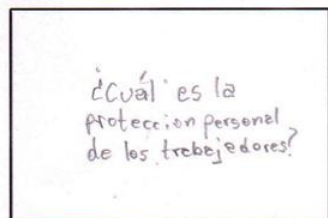 ¿Cuál es la
proteccion personal
de los trabajadores?